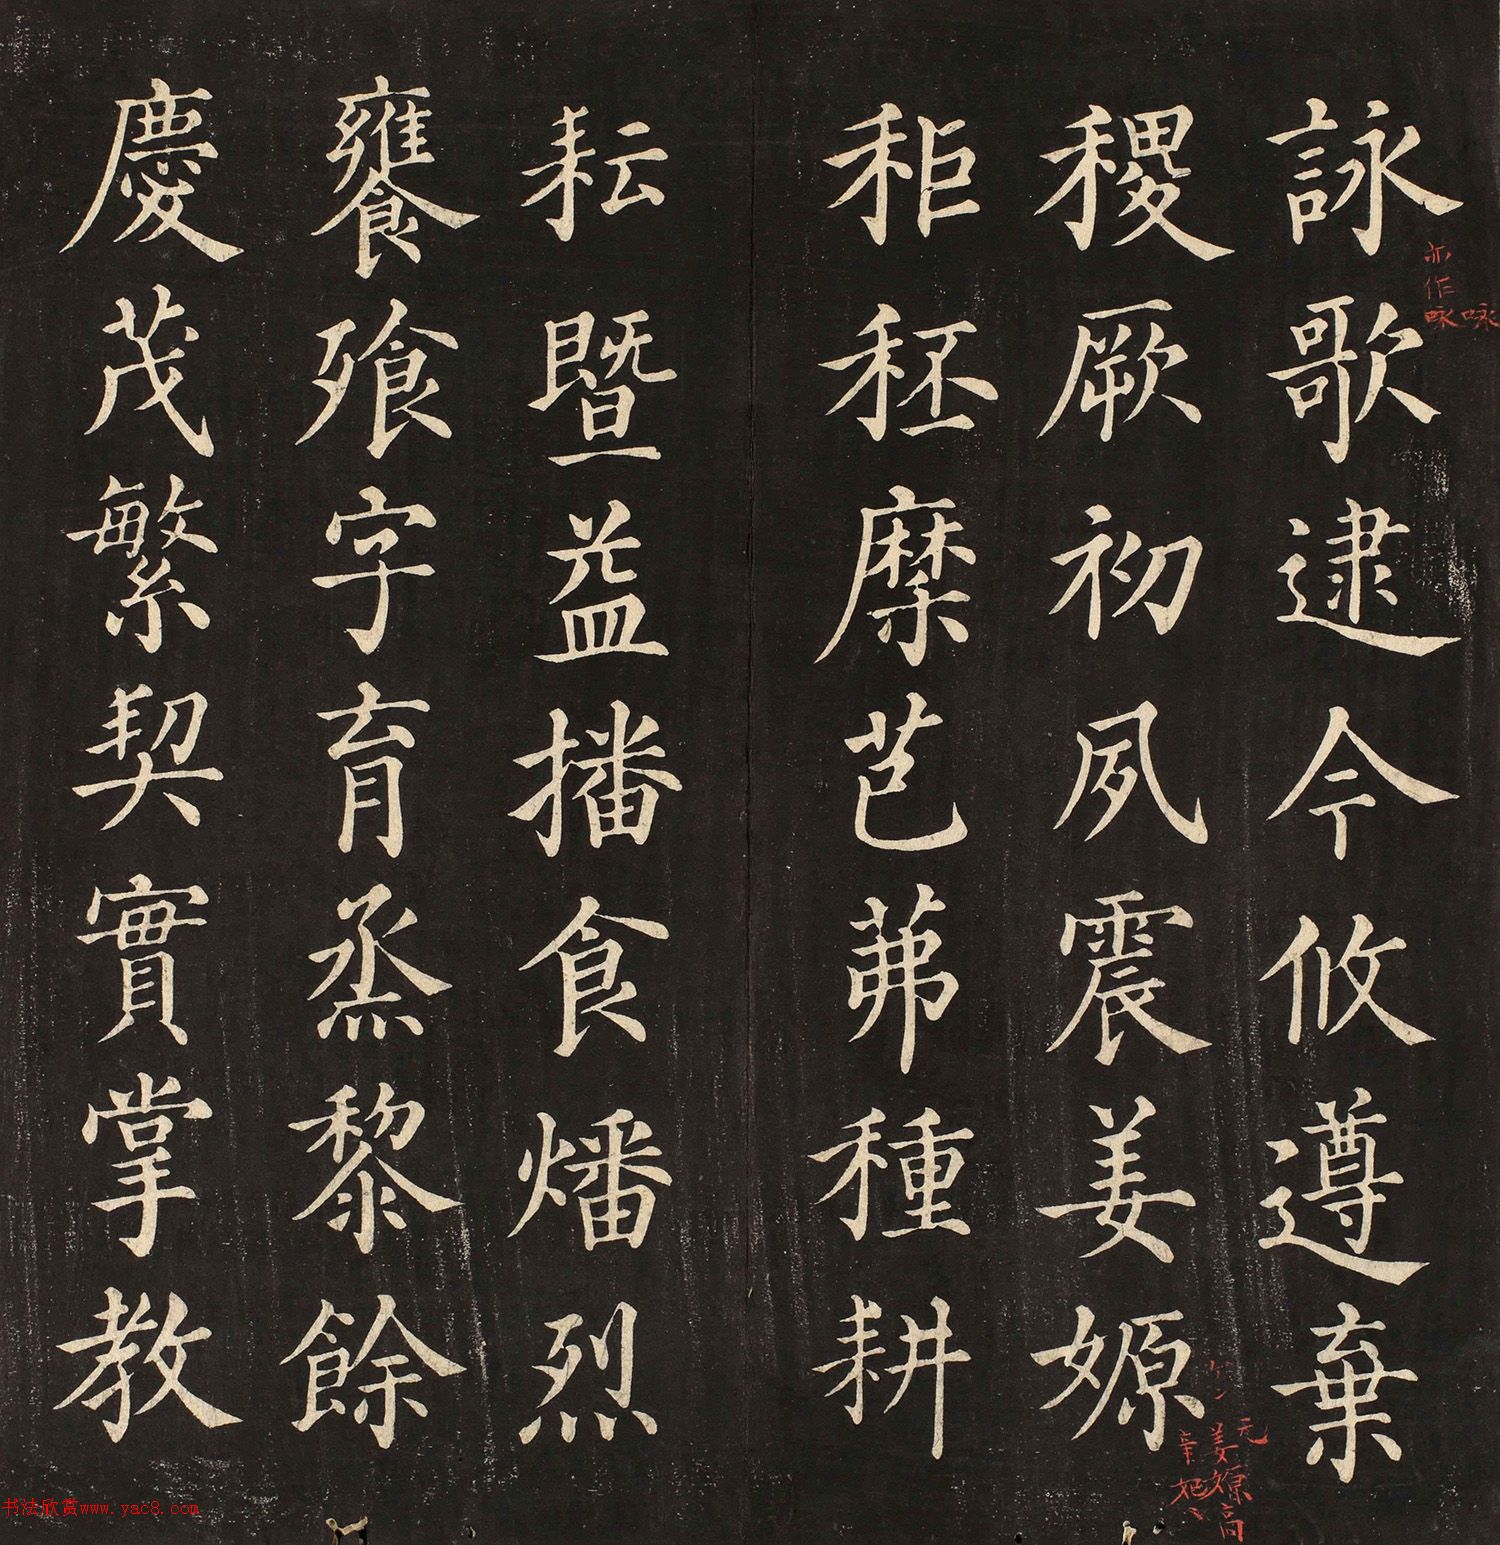 詠歌逮今攸遵棄
稷厥初夙震姜嫄
秬秠穈芑茀種耕
耘暨益播食燔烈
饔飧字育烝黎餘
慶茂繁契實掌教
亦作咏
咏
元
姜嫄高
辛妃
书法欣赏www.yac8.com